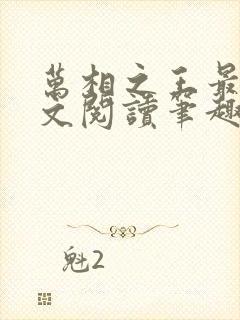 萬相之王最
文閱讀筆趣
魁2